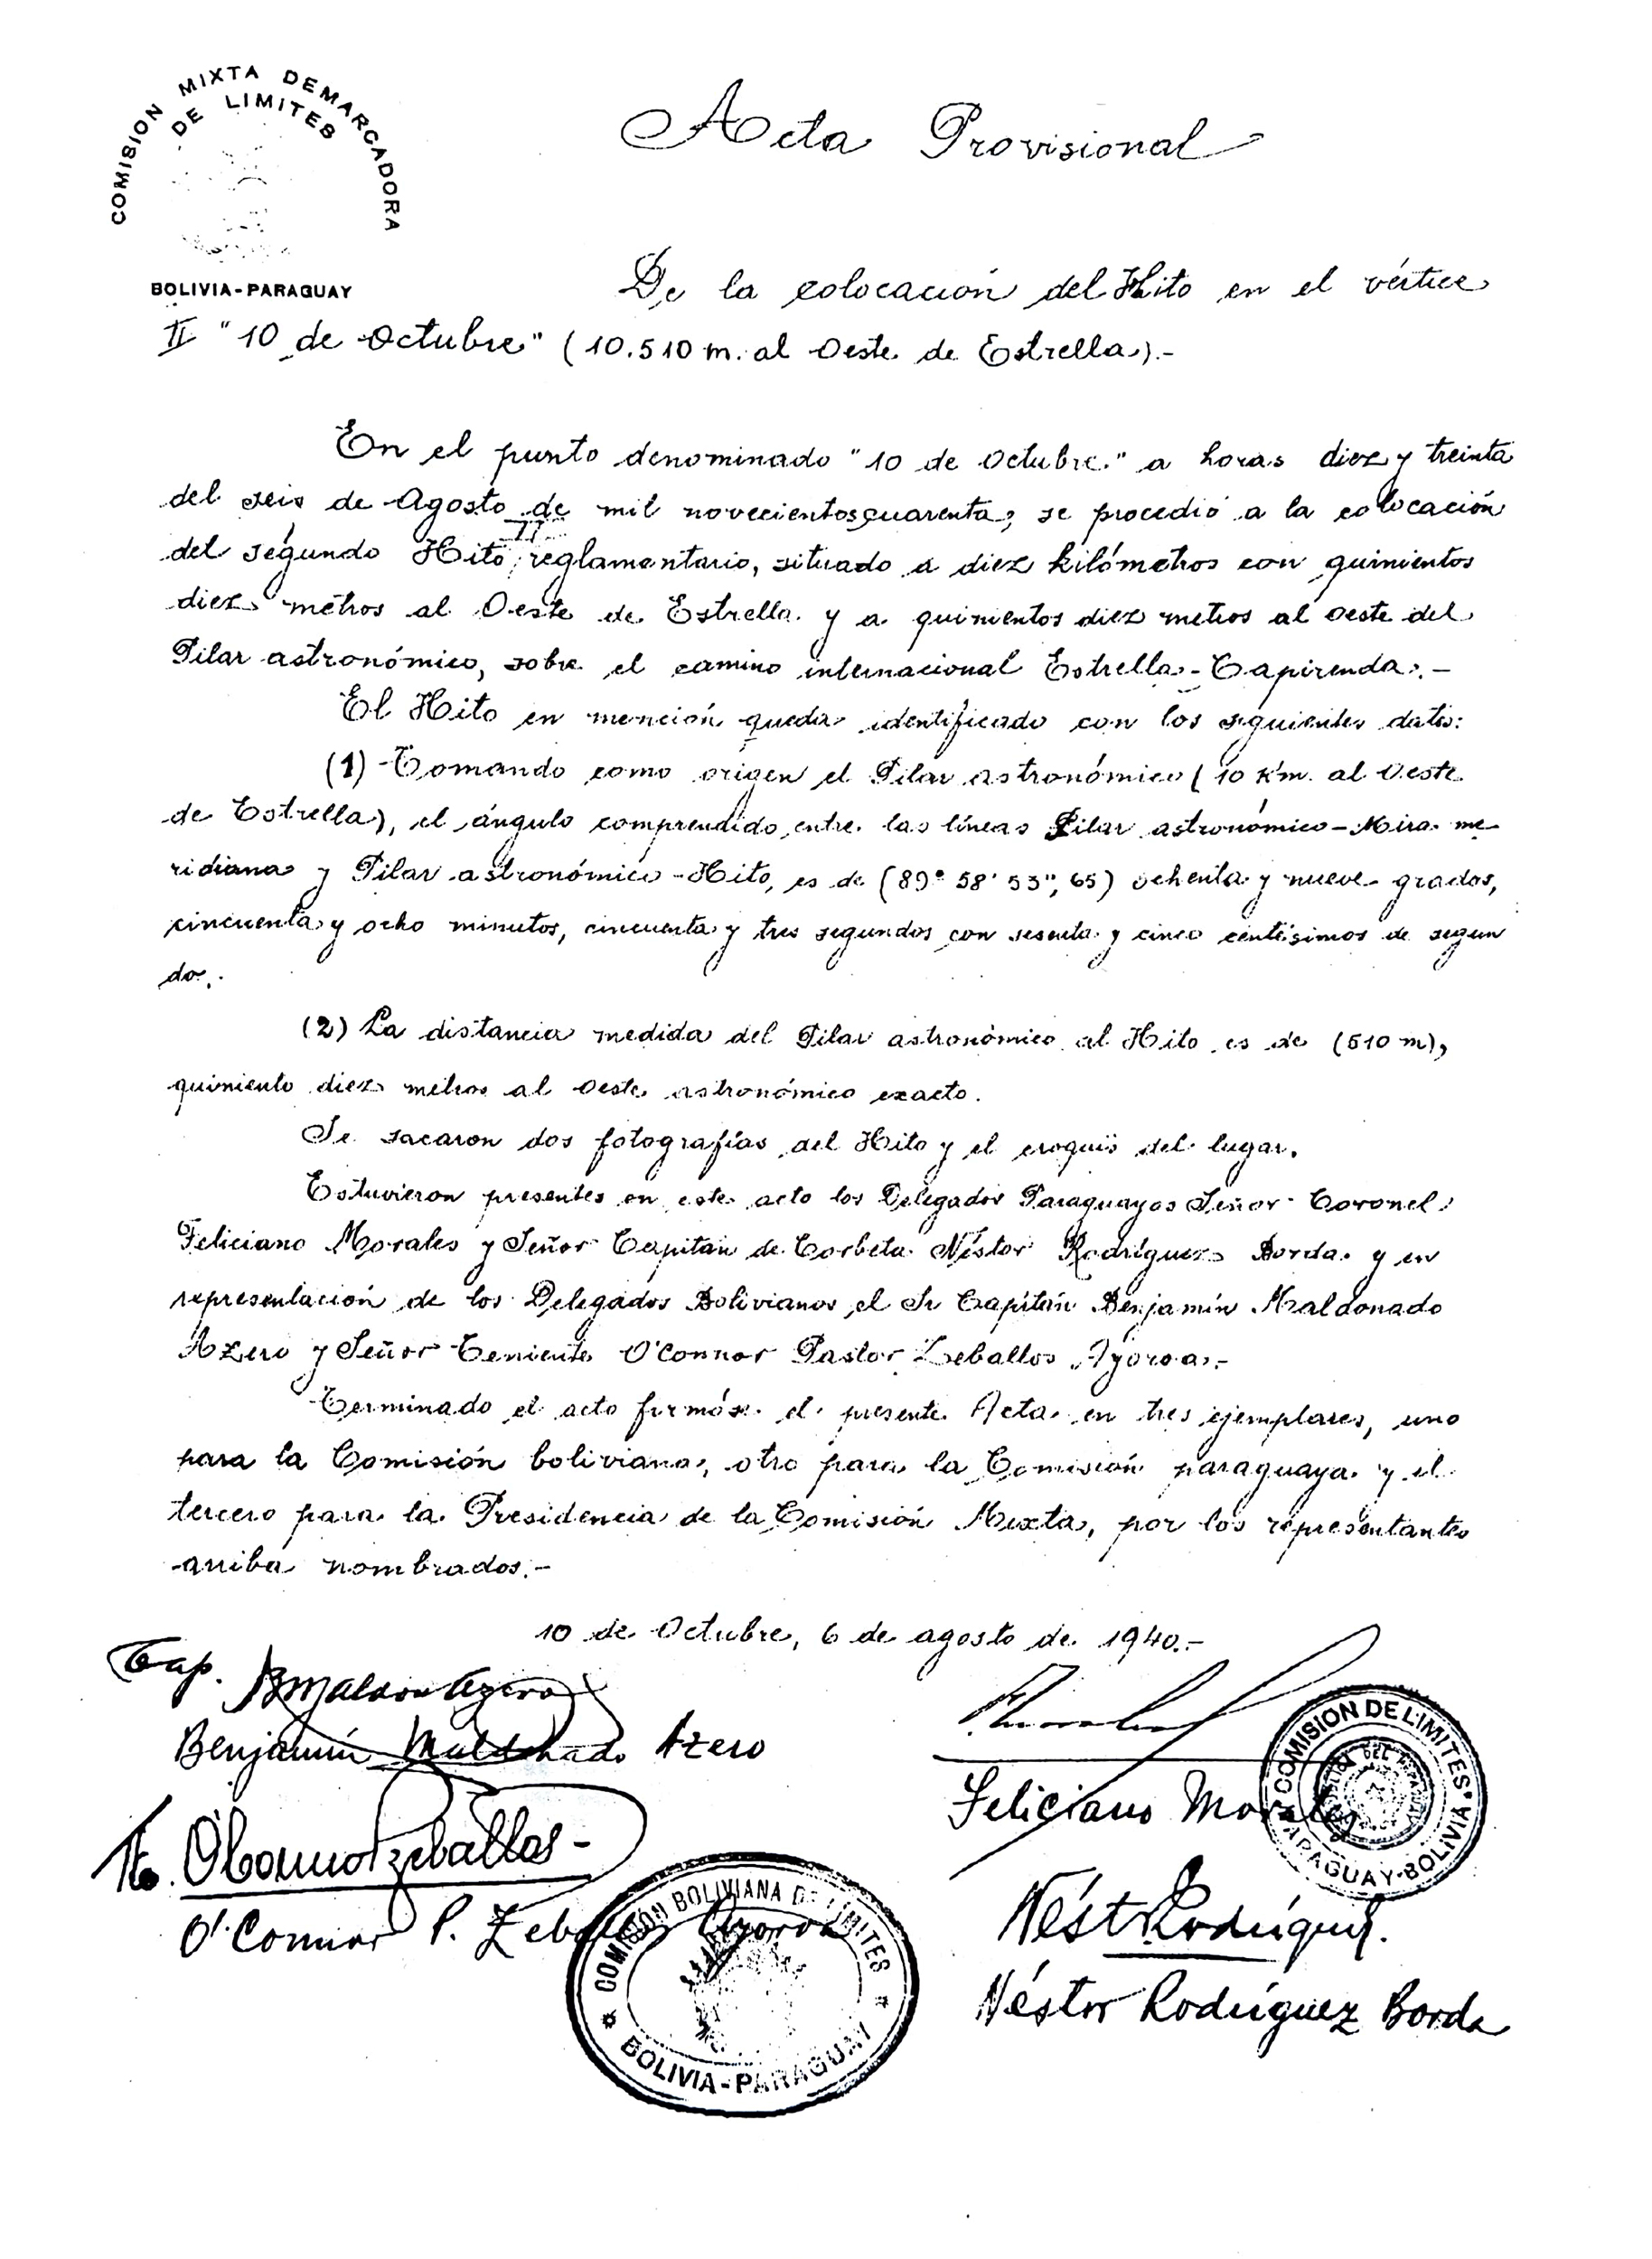 COMISION MIXTA DEMARCADORA
DE LIMITES
BOLIVIA-PARAGUAY
Acta Provisional
De la colocación del Hito en el vértice
II "10 de Octubre" (10.510 m. al Oeste de Estrella).-
En el punto denominado "10 de Octubre" a horas diez y treinta
del seis de Agosto de mil novecientos cuarenta, se procedió a la colocación
del segundo Hito II reglamentario, situado a diez kilómetros con quinientos
diez metros al Oeste de Estrella y a quinientos diez metros al Oeste del
Pilar astronómico, sobre el camino internacional Estrella-Capirenda.-
El Hito en mención queda identificado con los siguientes datos:
(1) Tomando como origen el Pilar astronómico (10 Km. al Oeste
de Estrella), el ángulo comprendido entre las líneas Pilar astronómico-Mira me-
ridiana y Pilar astronómico-Hito, es de (89° 58' 53", 65) ochenta y nueve grados,
cincuenta y ocho minutos, cincuenta y tres segundos con sesenta y cinco centésimos de segun
do.
(2) La distancia medida del Pilar astronómico al Hito es de (510 m),
quiniento diez metros al Oeste astronómico exacto.
Se sacaron dos fotografías del Hito y el croquis del lugar.
Estuvieron presentes en este acto los Delegados Paraguayos Señor Coronel
Feliciano Morales y Señor Capitán de Corbeta Néstor Rodríguez Borda y en
representación de los Delegados Bolivianos el Sr Capitán Benjamín Maldonado
Azero y Señor Teniente O'Connor Pastor Zeballos Ayoroa.-
Terminado el acto firmóse el presente Acta en tres ejemplares, uno
para la Comisión boliviana, otro para la Comisión paraguaya y el
tercero para la Presidencia de la Comisión Mixta, por los representantes
arriba nombrados.-
10 de Octubre, 6 de agosto de 1940.-
Cap. BMaldon Azero
Benjamín Maldonado Azero
Feliciano Morales
COMISION DE LIMITES
PARAGUAY-BOLIVIA
Tte. O'Connor Zeballos-
O'Connor P. Zeballos Ayoroa
COMISIÓN BOLIVIANA DE LÍMITES
BOLIVIA-PARAGUAY
Nést Rodríguez.
Néstor Rodríguez Borda